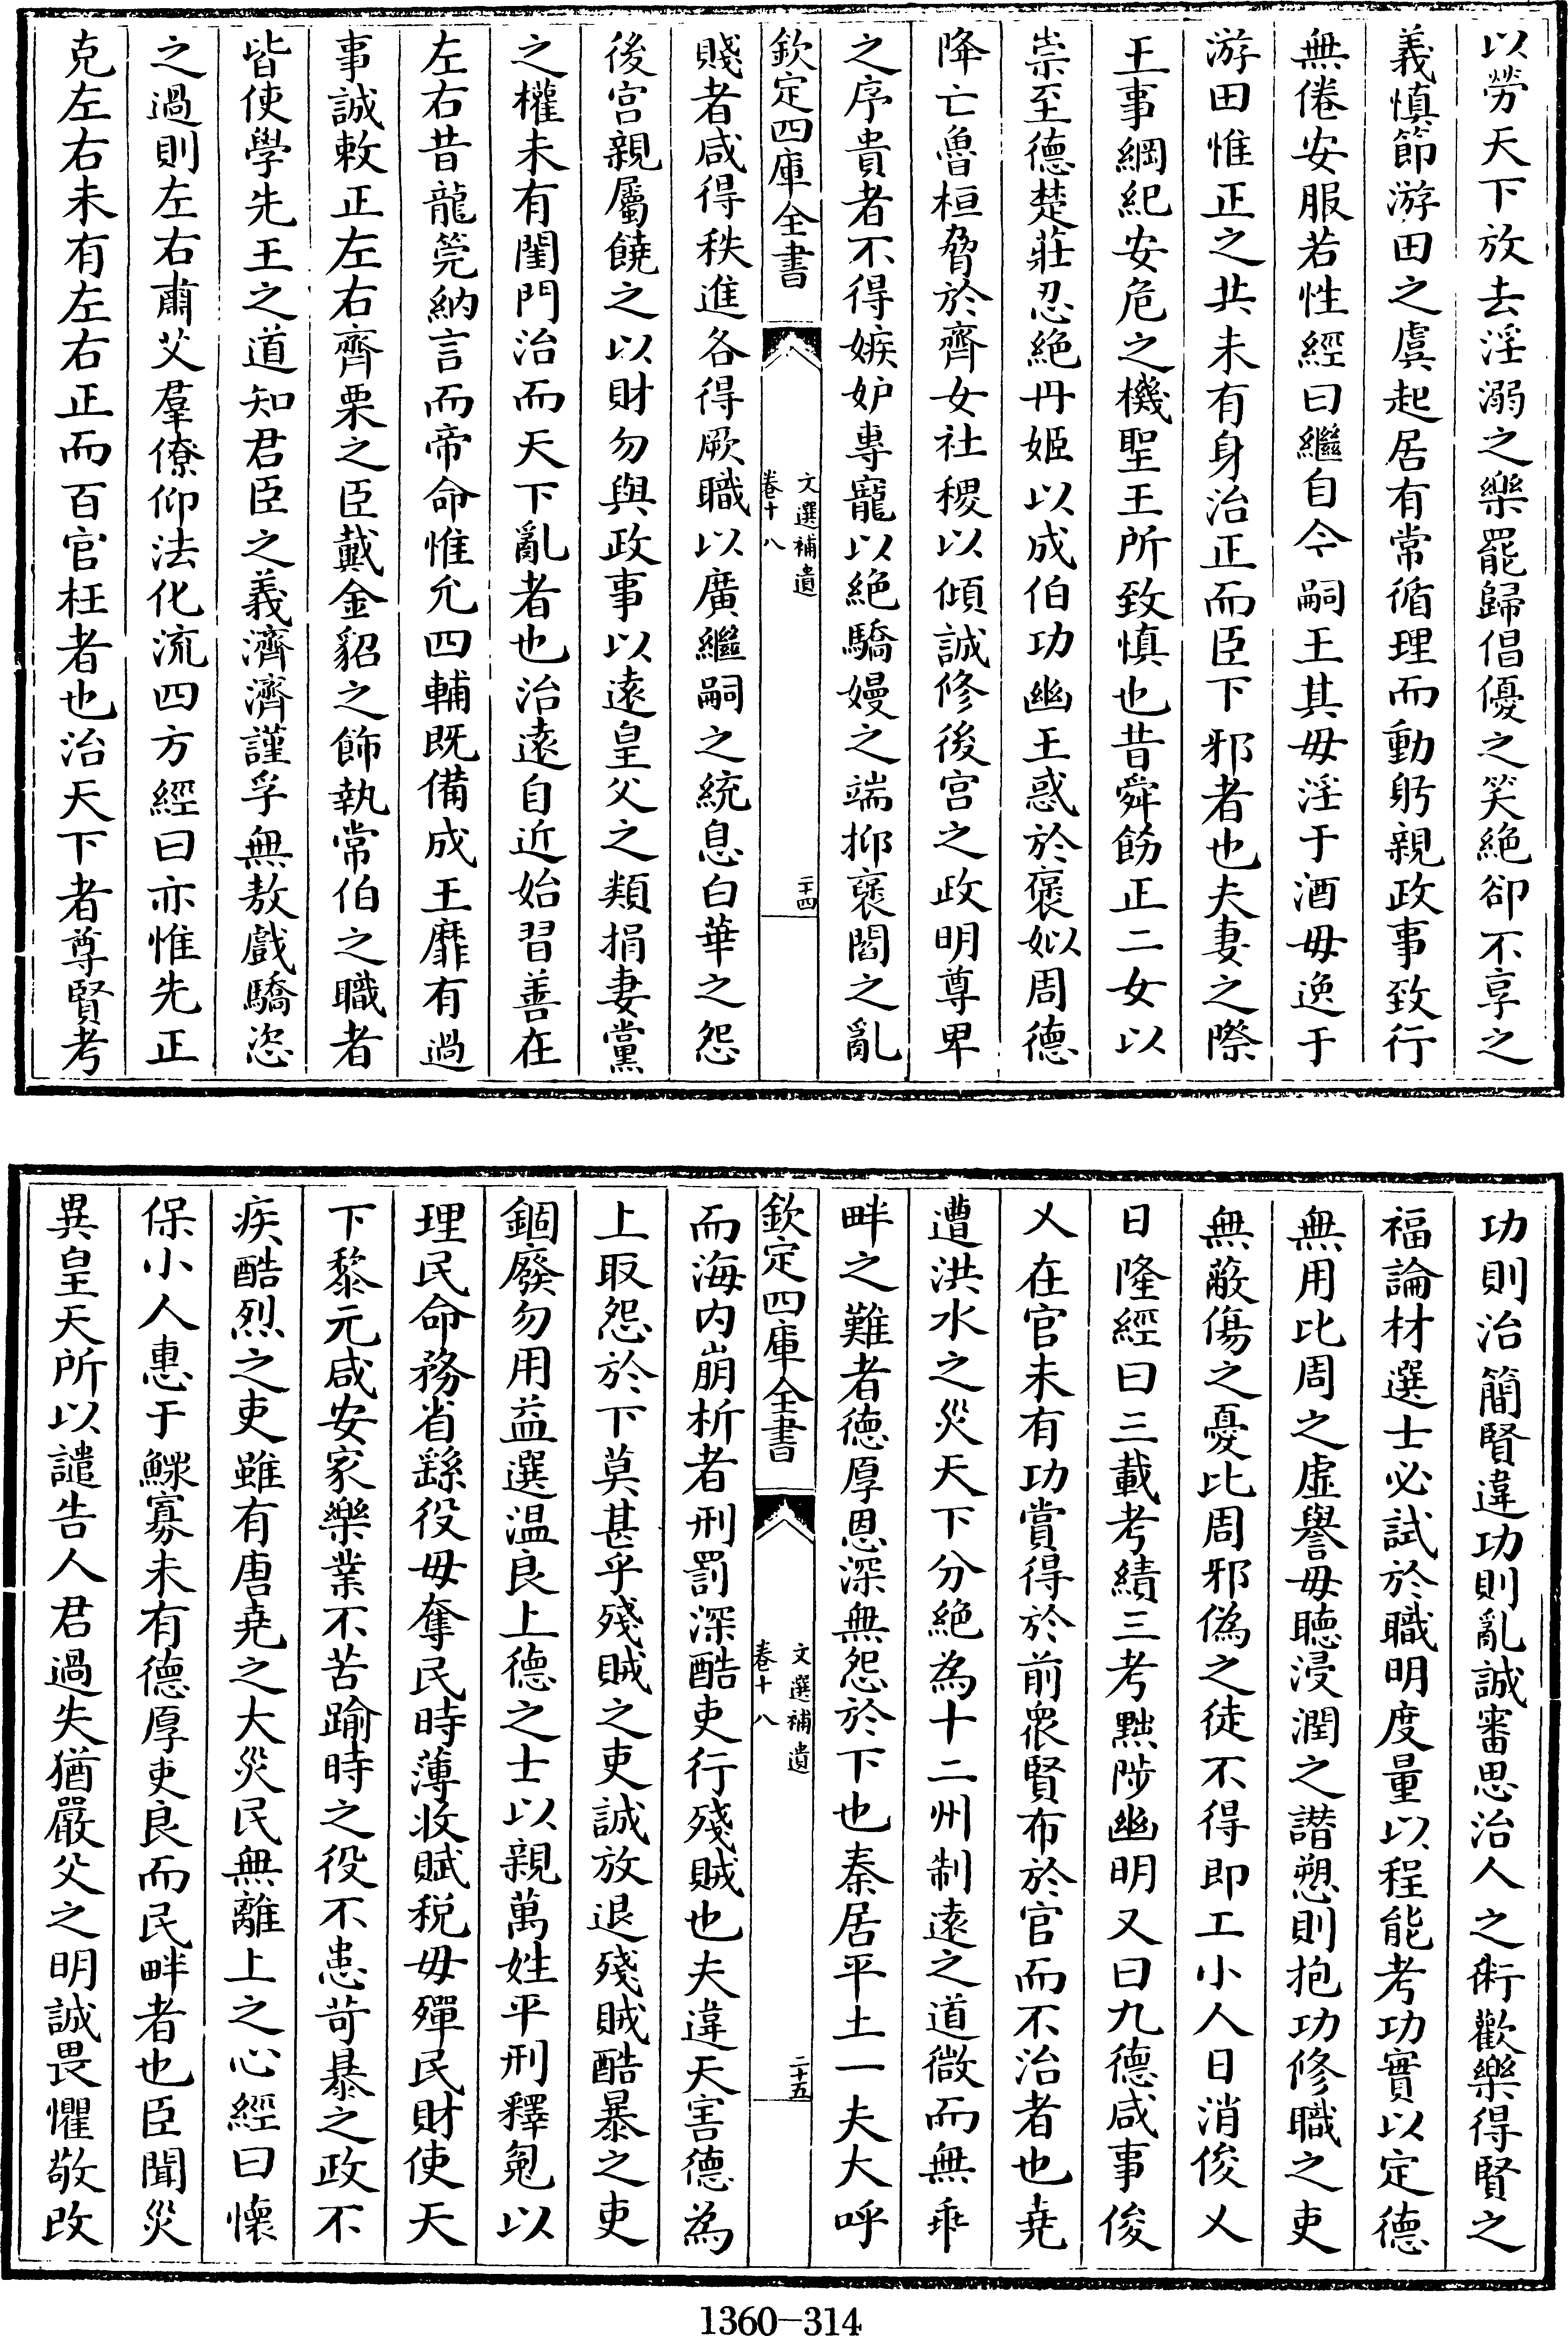 以勞天下放去淫溺之樂罷歸倡優之笑絶卻不享之
義慎節游田之虞起居有常循理而動躬親政事致行
無倦安服若性經曰繼自今嗣王其毋淫于酒毋逸于
游田惟正之共未有身治正而臣下邪者也夫妻之際
王事綱紀安危之機聖王所致慎也昔舜飭正二女以
崇至德楚莊忍絶丹姬以成伯功幽王惑於褒姒周德
降亡魯桓脅於齊女社稷以傾誠修後宫之政明尊卑
之序貴者不得嫉妒專寵以絶驕嫚之端抑褒閻之亂
欽定四庫全書
文選補遺
卷十八
二十四
賤者咸得秩進各得厥職以廣繼嗣之統息白華之怨
後宫親屬饒之以財勿與政事以遠皇父之類損妻黨
之權未有閨門治而天下亂者也治遠自近始習善在
左右昔龍筦納言而帝命惟允四輔既備成王靡有過
事誠敕正左右齊栗之臣戴金貂之飾執常伯之職者
皆使學先王之道知君臣之義濟濟謹孚無敖戲驕恣
之過則左右肅艾羣僚仰法化流四方經曰亦惟先正
克左右未有左右正而百官枉者也治天下者尊賢考
功則治簡賢違功則亂誠審思治人之術歡樂得賢之
福論材選士必試於職明度量以程能考功實以定德
無用比周之虚譽毋聽浸潤之譖愬則抱功修職之吏
無蔽傷之憂比周邪偽之徒不得即工小人日消俊乂
日隆經曰三載考績三考黜陟幽明又曰九德咸事俊
乂在官未有功賞得於前衆賢布於官而不治者也堯
遭洪水之災天下分絶為十二州制遠之道微而無乖
畔之難者德厚恩深無怨於下也秦居平土一夫大呼
欽定四庫全書
文選補遺
卷十八
二十五
而海内崩析者刑罰深酷吏行殘賊也夫違天害德為
上取怨於下莫甚乎殘賊之吏誠放退殘賊酷暴之吏
錮廢勿用益選温良上德之士以親萬姓平刑釋寃以
理民命務省繇役毋奪民時薄收賦税毋殫民財使天
下黎元咸安家樂業不苦踰時之役不患苛暴之政不
疾酷烈之吏雖有唐堯之大災民無離上之心經曰懷
保小人惠于鰥寡未有德厚吏良而民畔者也臣聞災
異皇天所以譴告人君過失猶嚴父之明誡畏懼敬改
1360-314